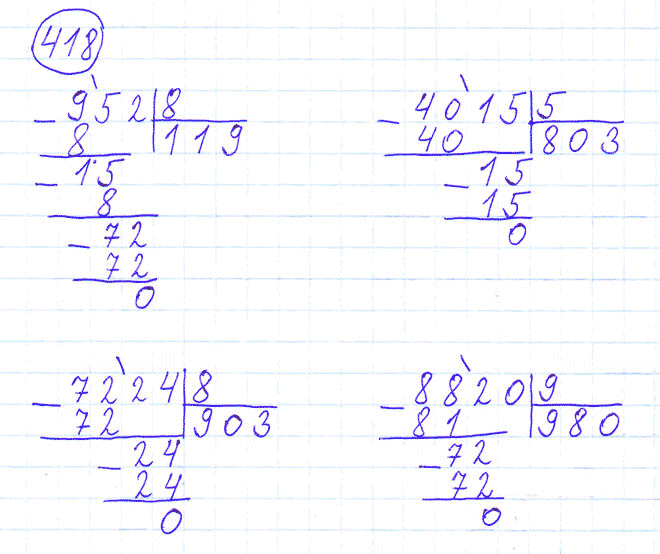 418
- 952 | 8
8 | 119
- 15
8
- 72
72
0
- 4015 | 5
40 | 803
- 15
15
0
- 7224 | 8
72 | 903
- 24
24
0
- 8820 | 9
81 | 980
- 72
72
0